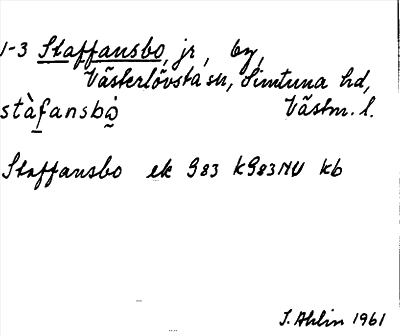 1-3 Staffansbo, jr, by,
Västerlövsta sn, Simtuna hd,
stàfansbò̤ Västm. l.
Staffansbo ek 983 k983NV kb
I. Ahlin 1961